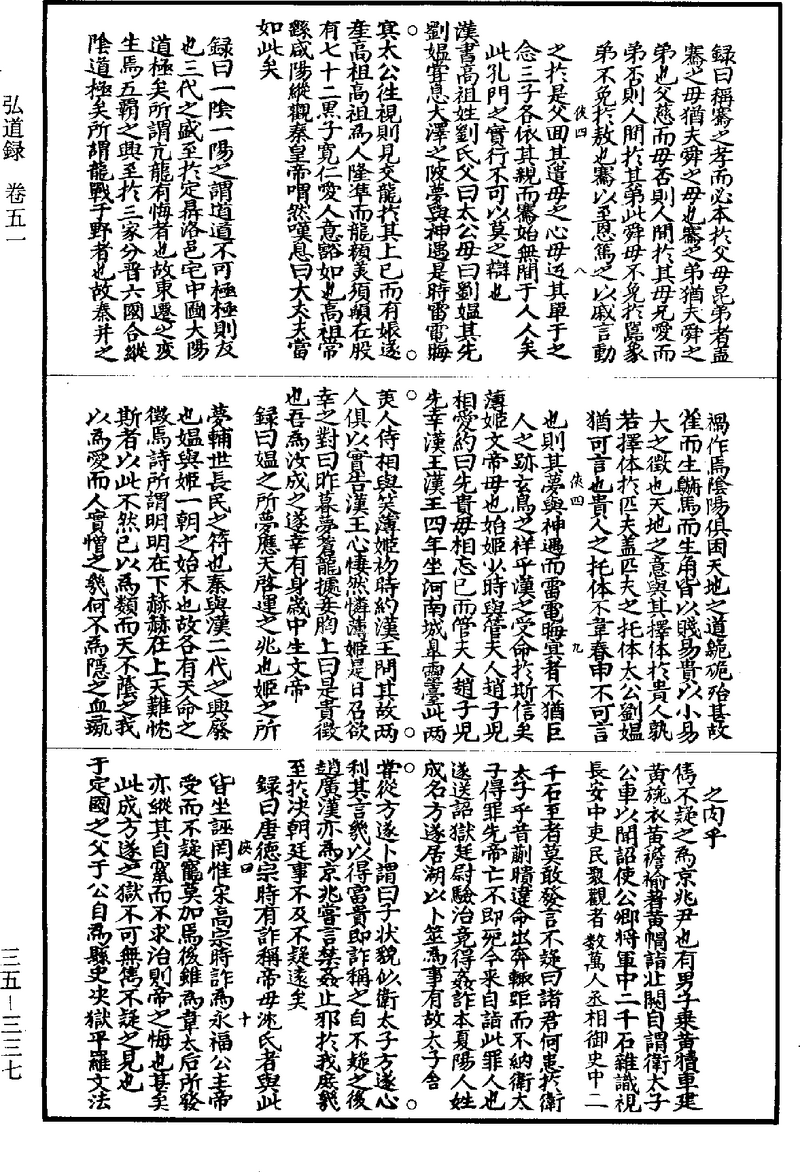 録曰稱騫之孝而必本於父母昆弟者蓋
騫之母猶夫舜之母也騫之弟猶夫舜之
弟也父慈而母否則人間於其母兄愛而
弟否則人間於其弟此舜母不免於嚚象
弟不免於敖也騫以至恩焉之以戚言動
之於是父回其遣母之心母迈其單于之
念三子各依其親而騫始無間于人人矣
此孔門之實行不可以莫之辯也
漢書高祖姓劉氏父曰太公母曰劉媼其先
劉媼甞息大澤之陂夢與神遇是時雷電晦
冥太公徃視則見交龍於其上已而有娠遂
産高祖高祖為人隆凖而龍顏美須髯左股
有七十二黑子寛仁愛人意豁如也高祖常
繇咸陽縱觀秦皇帝喟然嘆息曰大丈夫當
如此矣
録曰一陰一陽之謂道道不可極極則反
也三代之盛至於定鼎洛邑宅中圗大陽
道極矣所謂亢龍有悔者也故東遷之変
生焉五覇之興至於三家分晋六國合縱
陰道極矣所謂龍戰于野者也故秦并之
禍作焉陰陽俱困天地之道䠊硊殆甚故
雀而生鸇馬而生角皆以賤易貴以小易
大之徵也天地之意與其擇体於貴人孰
若擇体於匹夫盖匹夫之托体太公劉媼
猶可言也貴人之托体不韋春申不可言
也則其夢與神遇而雷電晦冥者不猶巨
人之跡玄鳥之祥乎漢之受命於斯信矣
薄姬文帝母也始姬少時與管夫人趙子兒
相愛約曰先貴毋相忘已而管夫人趙子兒
先幸漢王漢王四年坐河南城臯靈臺此两
美人侍相與笑薄姬初時約漢王問其故两
人俱以實告漢王心悽然憐薄姬是日召欲
幸之對曰昨暮夢蒼龍據妾胸上曰是貴徵
也吾為汝成之遂幸有身歲中生文帝
録曰媼之所夢應天啓運之兆也姬之所
夢輔世長民之符也秦與漢二代之興廢
也媼與姬一朝之始末也故各有天命之
徵焉詩所謂明明在下赫赫在上天難忱
斯者以此不然已以為類而天不蔭之我
以為愛而人實憎之幾何不為隱之血䟽
之肉乎
雋不疑之為京兆尹也有男子乗黄犢車建
黄旐衣黄襜褕著黄㡌詣北闕自謂衛太子
公車以聞詔使公卿將軍中二千石雜識視
長安中吏民聚觀者數萬人丞相御史中二
千石至者莫敢發言不疑曰諸君何患於衛
太子乎昔蒯聵違命出奔輙距而不納衛太
子得罪先帝亡不即死今來自詣此罪人也
遂送詔獄廷尉驗治竟得姦詐本夏陽人姓
成名方遂居湖以卜筮為事有故太子舍
甞從方遂卜謂曰子状貌似衛太子方遂心
利其言幾以得富貴即詐稱之自不疑之後
趙廣漢亦為京兆嘗言禁姦止邪於我庶幾
至於决朝廷事不及不疑遠矣
録曰唐德宗時有詐稱帝母沈氏者與此
皆坐誣罔惟宋高宗時詐為永福公主帝
受而不疑寵莫加焉後雖為韋太后所發
亦縱其自䆿而不求治則帝之悔也甚矣
此成方遂之獄不可無雋不疑之見也
于定國之父于公自為縣史决獄平羅文法
侠四
八
侠四
九
侠四
十
弘道録 卷五一
三五—三三七